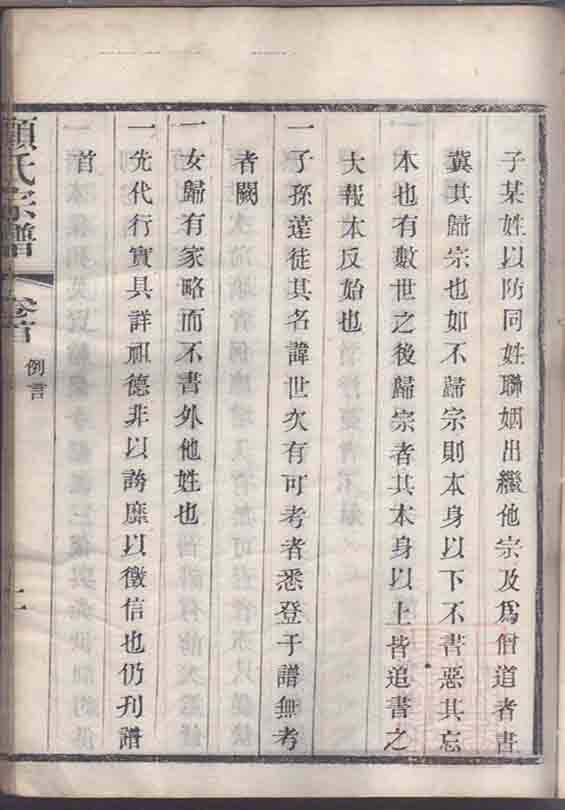 子某姓以防同姓聯姻出繼他宗及爲僧道者書
冀其歸宗也如不歸宗則本身以下不書惡其忘
本也有數世之後歸宗者其本身以上皆追書之
大報本反始也
一子孫遠徒其名諱世次有可考者悉登于譜無考
者闕
一女歸有家略而不書外他姓也
一先代行實具詳祖德非以誇靡以徵信也仍刊譜
首
顧氏宗譜
卷首
例言